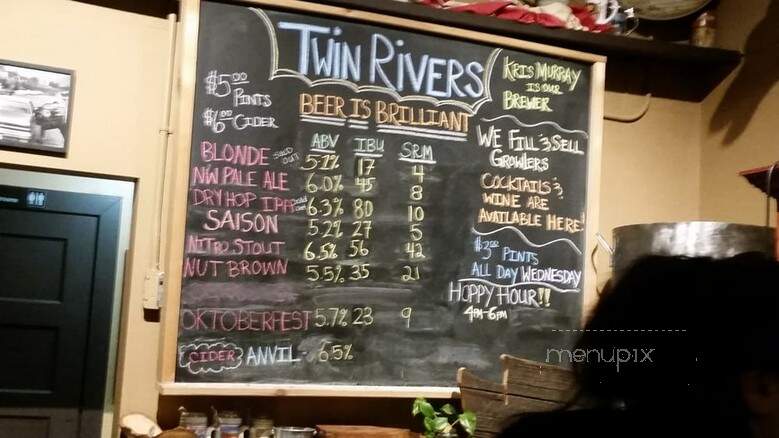 TWIN RIVERS
$5.00 PINTS
$6.00 CIDER
BEER IS BRILLIANT
KRIS MURRAY
IS OUR
BREWER
ABV IBU SRM
BLONDE SOLD OUT 5.2% 17 4
NW PALE ALE 6.0% 45 8
DRY HOP IPA SOLD OUT 6.3% 80 10
SAISON 5.2% 27 5
NITRO STOUT 6.5% 56 42
NUT BROWN 5.5% 35 21
OKTOBERFEST 5.7% 23 9
CIDER ANVIL- 6.5%
WE FILL & SELL
GROWLERS
COCKTAILS &
WINE ARE
AVAILABLE HERE!
$3.00 PINTS
ALL DAY WEDNESDAY
HOPPY HOUR!!
4PM-6PM
menupix